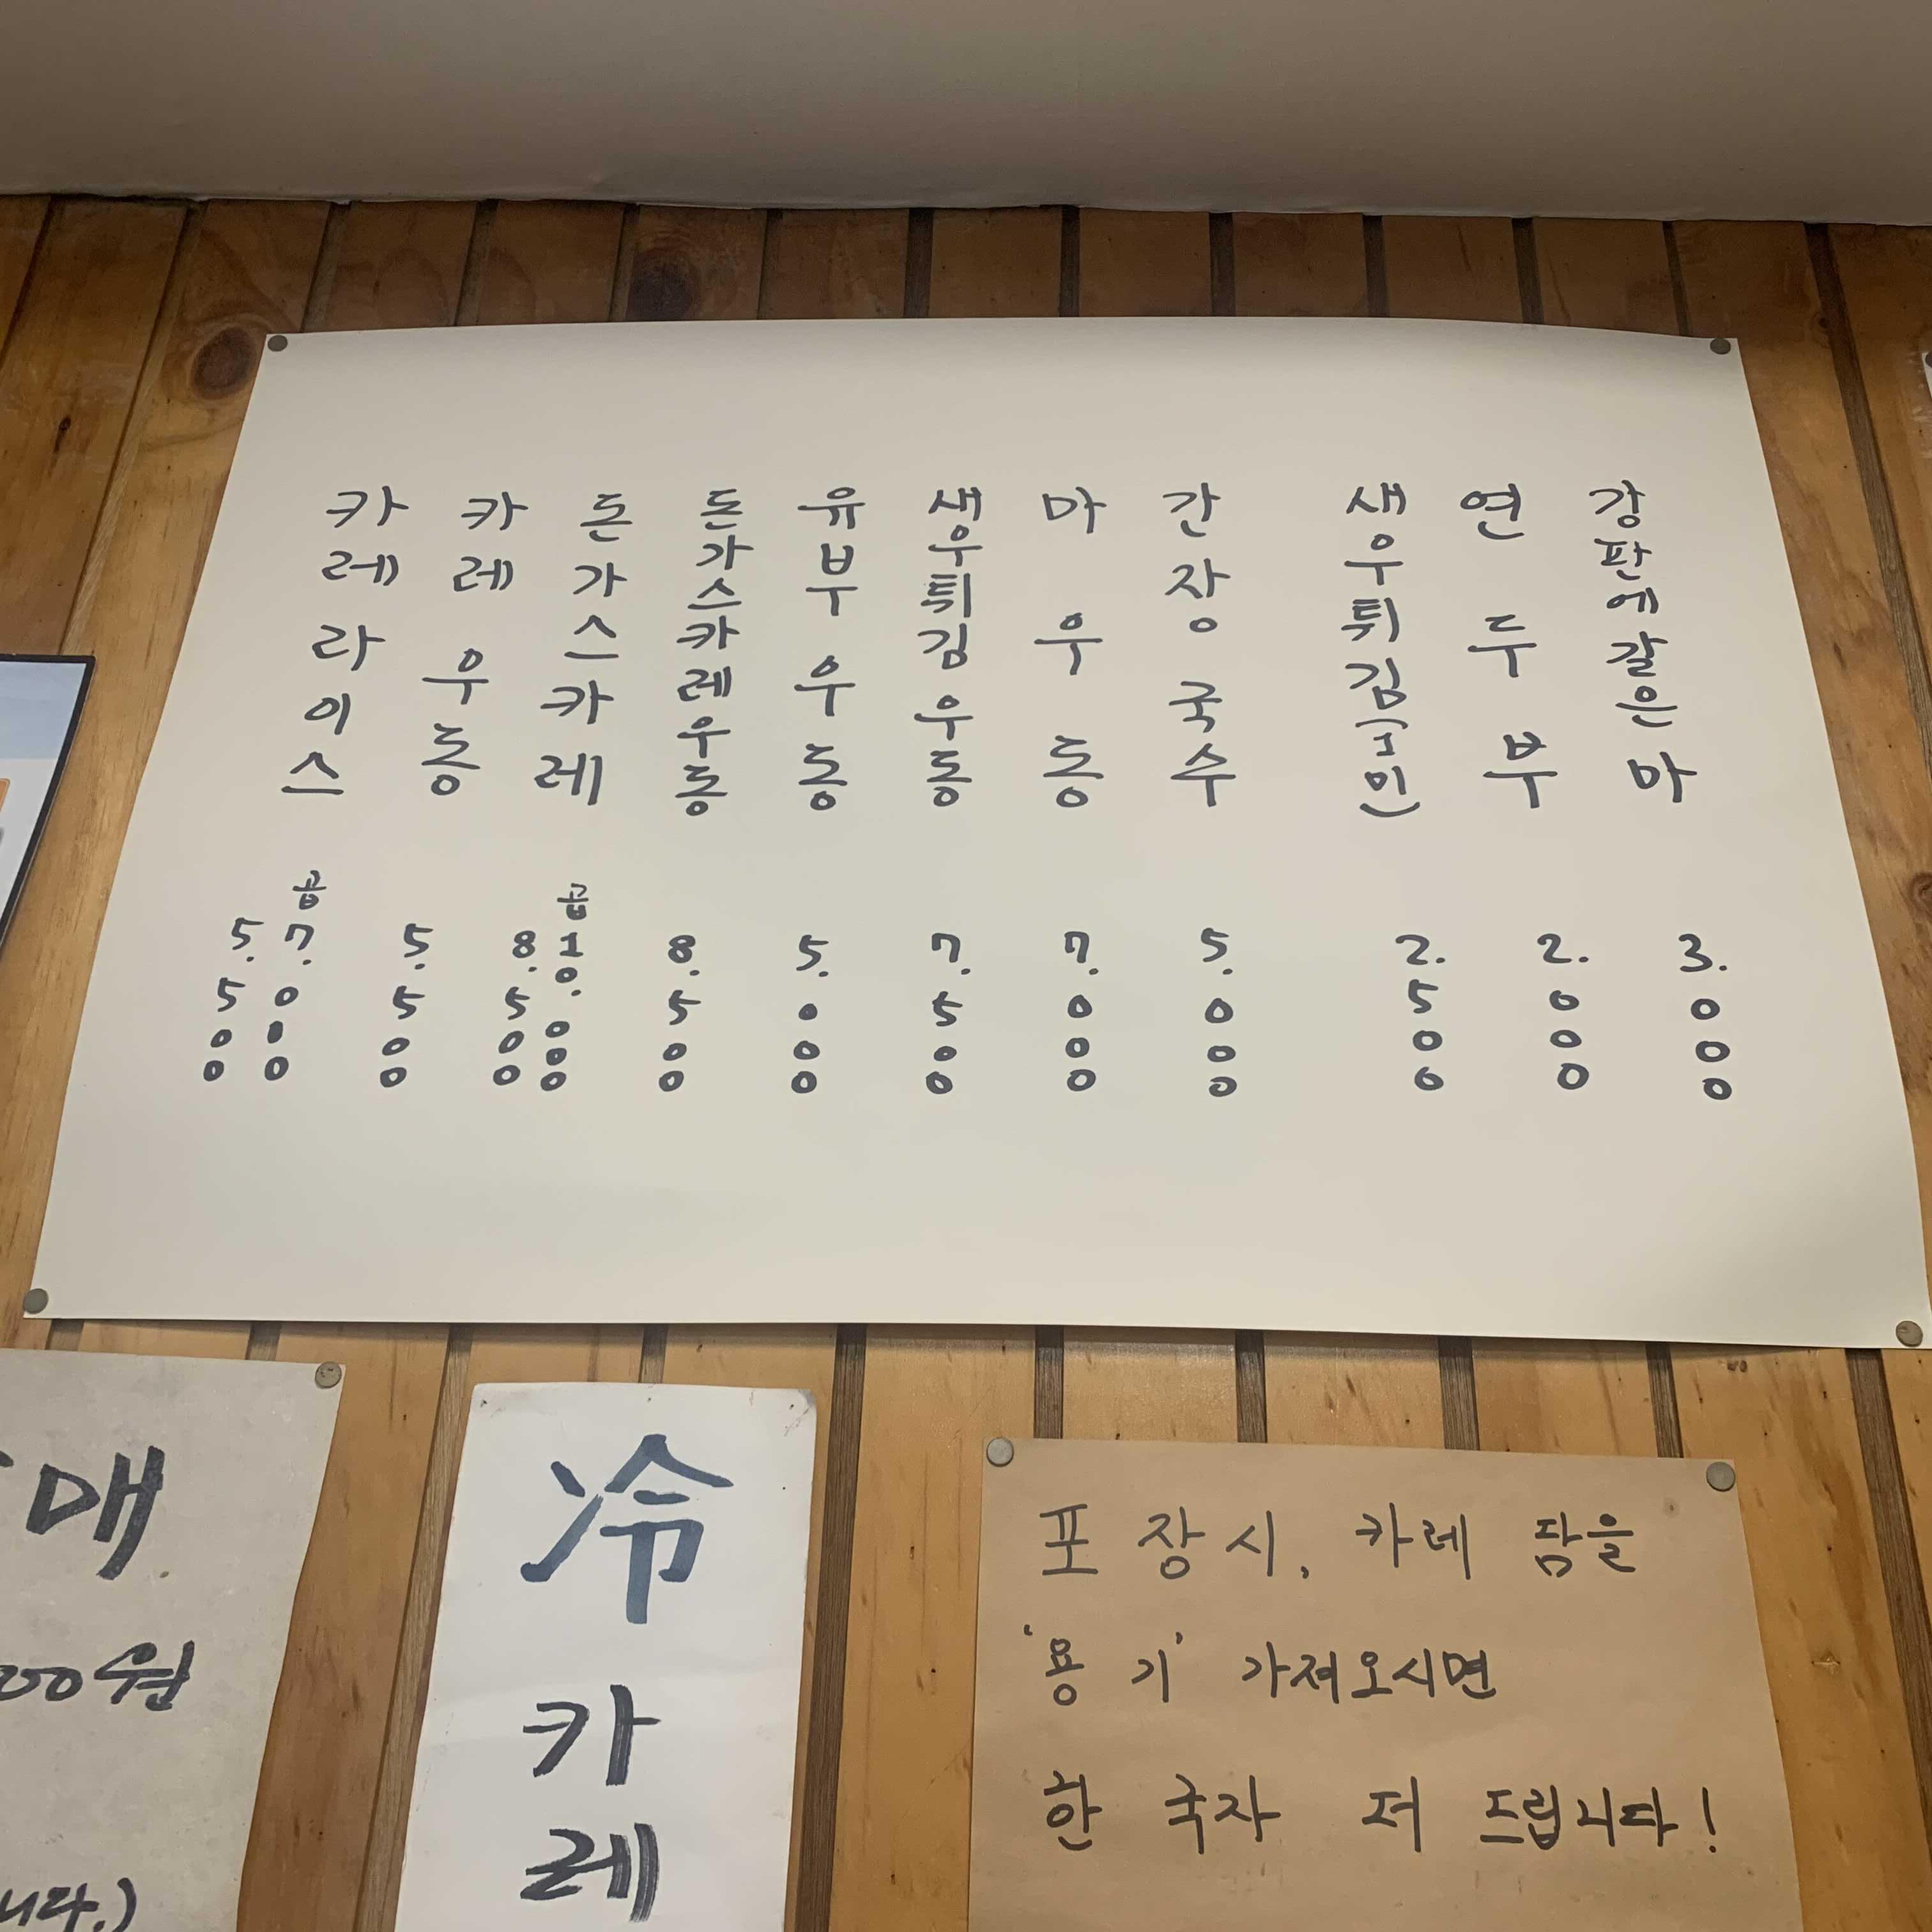 카레라이스 5.500 곱 7.000
카레 우동 5.500
돈가스카레 8.500 곱 10.000
돈가스카레우동 8.500
유부우동 5.000
새우튀김 우동 7.500
마우동 7.000
간장국수 5.000
새우튀김(1미) 2.500
연두부 2.000
강판에갈은마 3.000
매
00원
니다.)
冷
카
레
포장시, 카레 담을
'용기' 가져오시면
한 국자 더 드립니다!